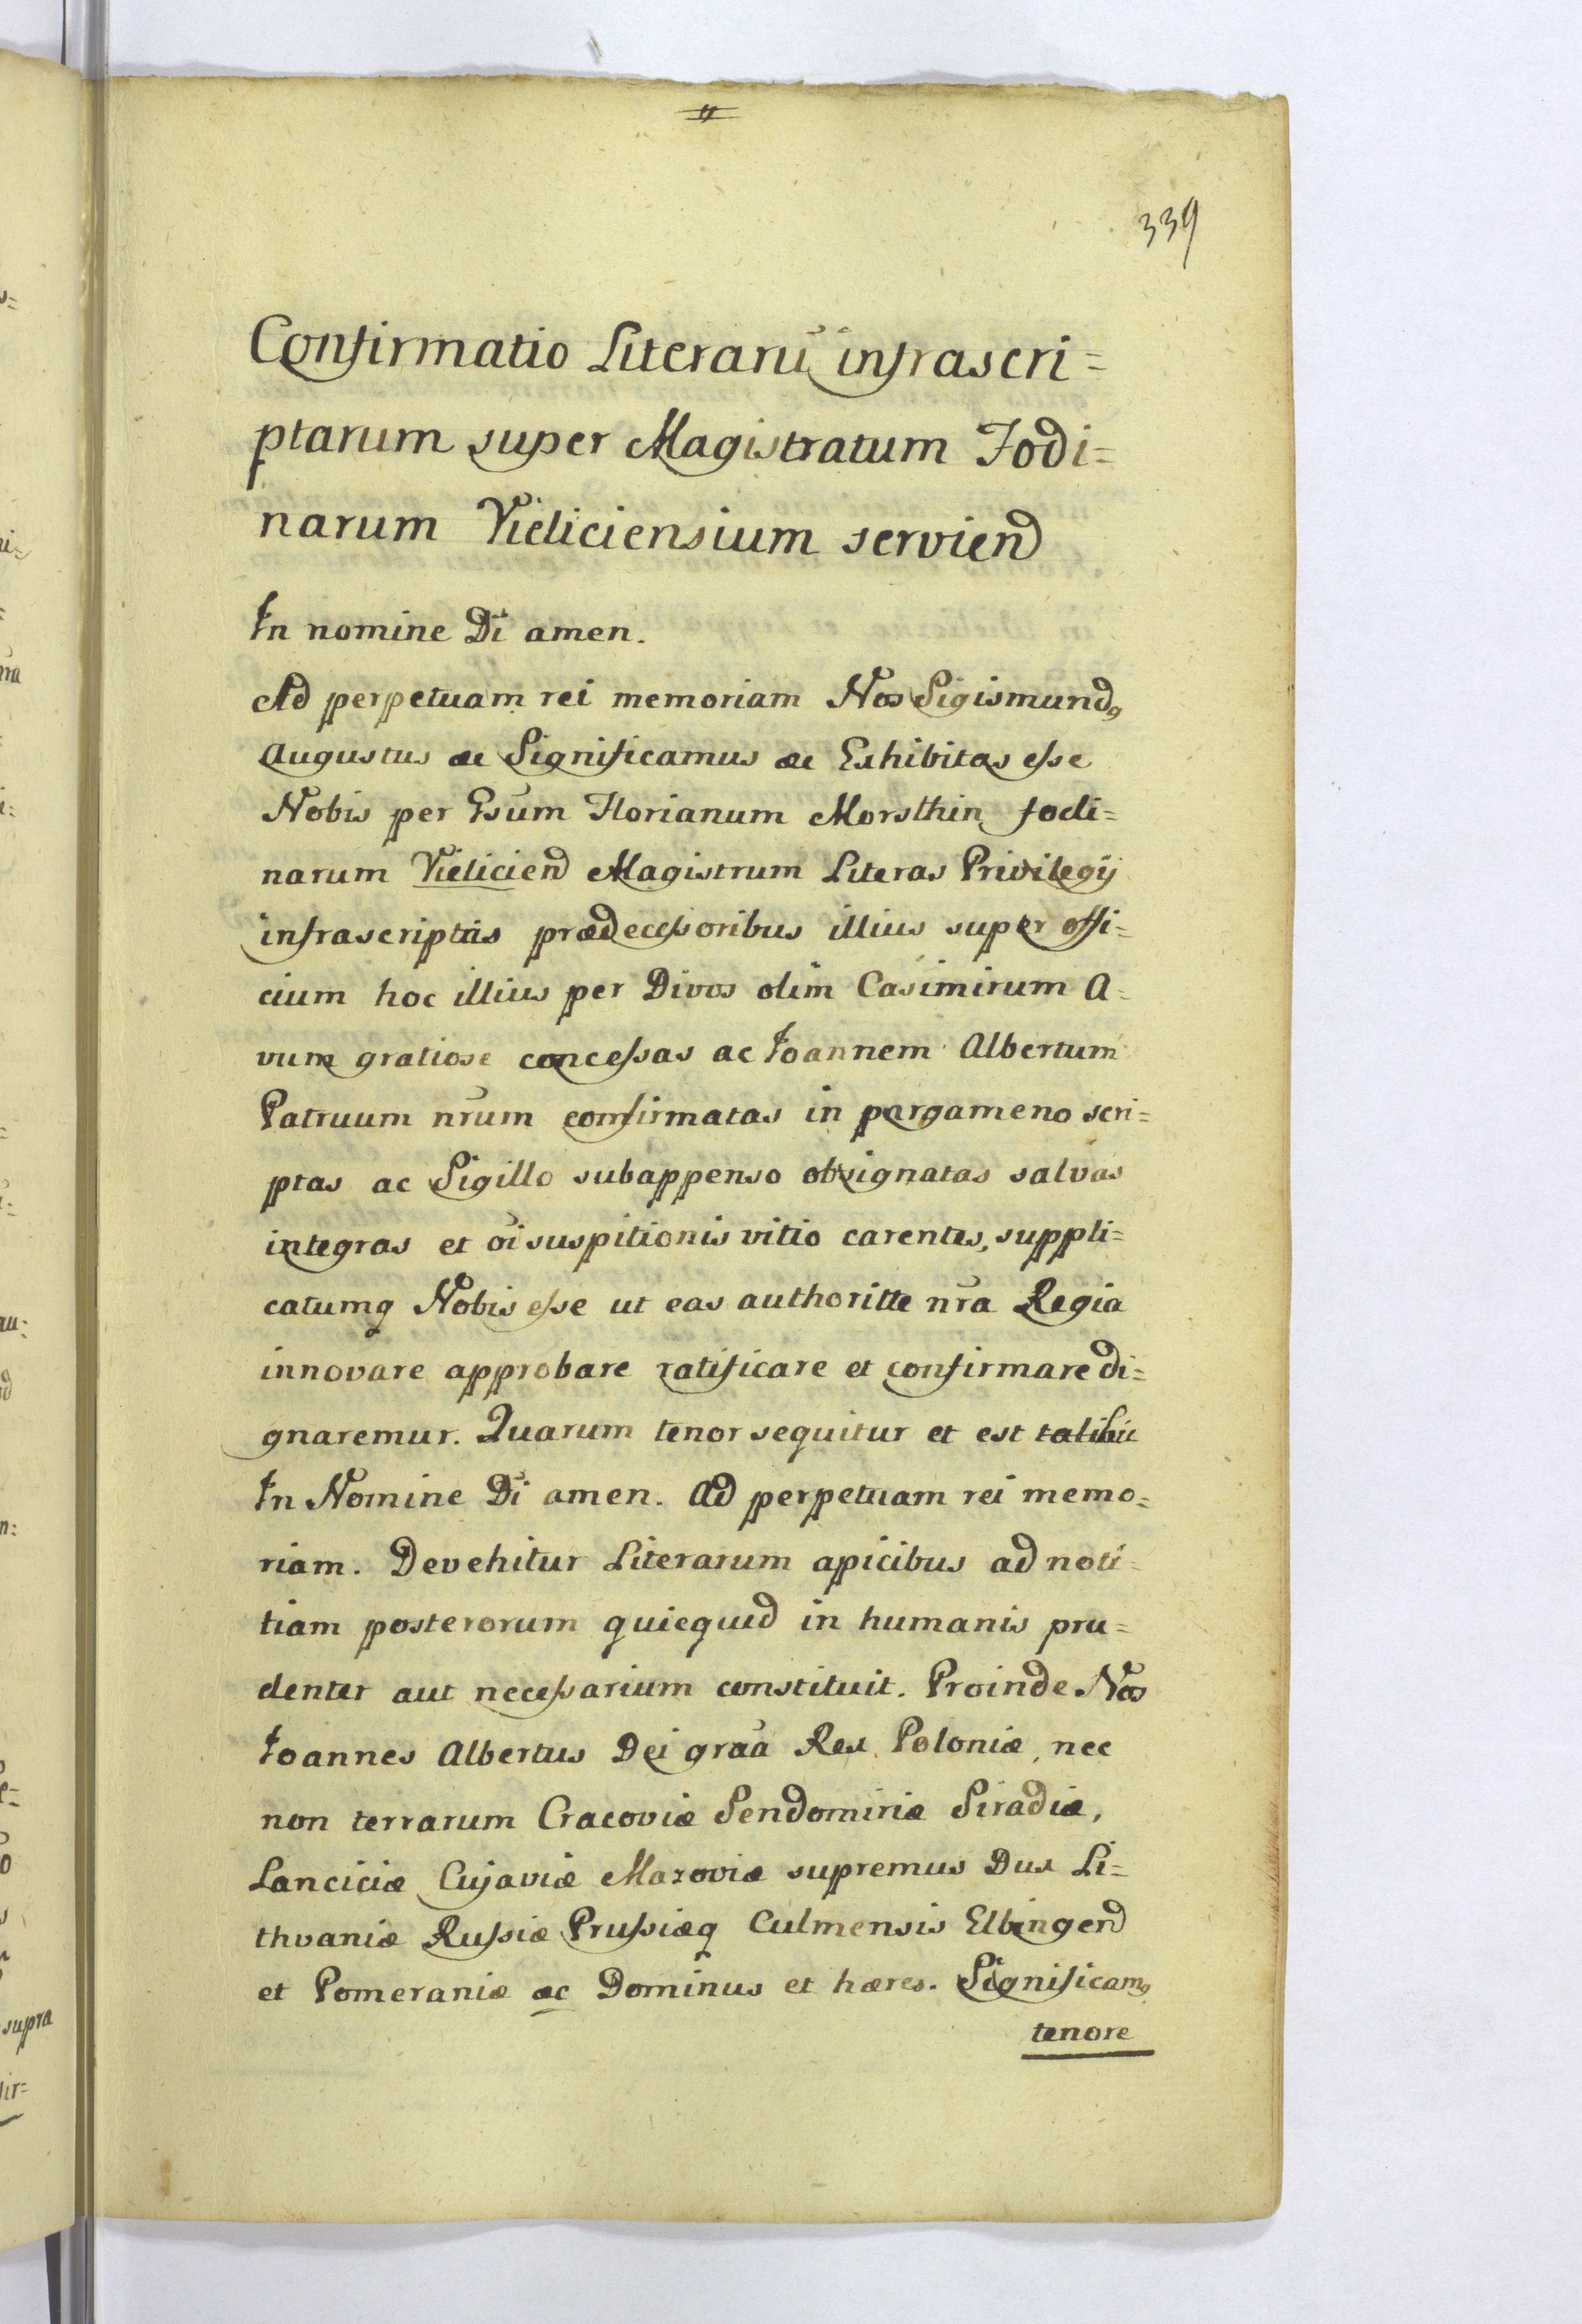 339
Confirmatio Literarū infrascri=
ptarum super Magistratum Fodi=
narum Vieliciensium serviend
In nomine Di amen.
Ad perpetuam rei memoriam Nos Sigismundꝰ
Augustus ac Significamus ac Exhibitas esse
Nobis per Gsum Florianum Morsthin fodi=
narum Vieliciend Magistrum Literas Privilegij
infrascriptas prædecessoribus illius super offi=
cium hoc illius per Divos olim Casimirum A=
vum gratiose concessas ac Ioannem Albertum
Patruum nrūm confirmatas in pargameno scri=
ptas ac Sigillo subappenso obsignatas salvas
integras et oī suspitionis vitio carentes, suppli=
catumq Nobis esse ut eas authoritte nrā Regia
innovare approbare ratificare et confirmare di=
gnaremur. Quarum tenor sequitur et est
In Nomine Di amen. Ad perpetuam rei memo=
riam. Devehitur Literarum apicibus ad noti=
tiam posterorum quicquid in humanis pru=
denter aut necessarium constituit. Proinde Nos
Ioannes Albertus Dei graā Rex Poloniæ, nec
non terrarum Cracoviæ Sendomiriæ Siradiæ,
Lanciciæ Cujaviæ Mazoviæ supremus Dux Li=
thvaniæ Russiæ Prussiæq Culmensis Elbingend
et Pomeraniæ ac Dominus et hæres. Significamꝰ
tenore